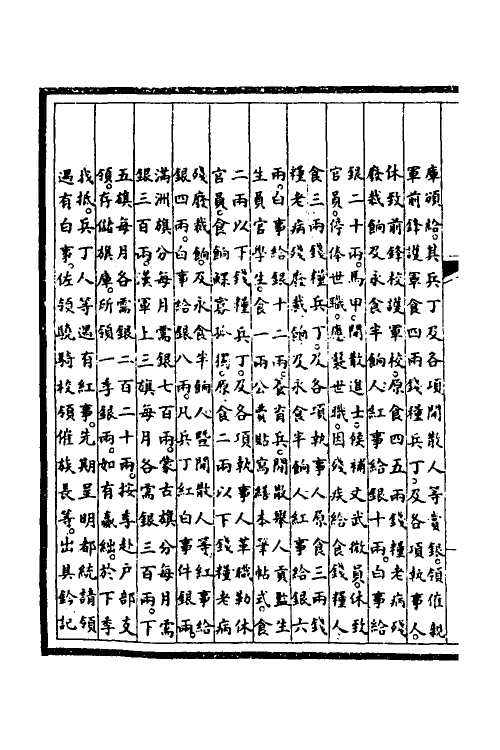 庫頒給。其兵丁及各項閒散人等賞銀。領催親
軍前鋒護軍食四兩錢糧兵丁。及各項執事人。
休致前鋒校護軍校。原食四五兩錢糧老病殘
廢裁餉及永食半餉人。紅事給銀十兩。白事給
銀二十兩。馬甲。閒散進士。候補文武微員。休致
官員。停俸世職。應襲世職。因殘疾給食錢糧人
食三兩錢糧兵丁。及各項執事人。原食三兩錢
糧老病殘廢裁餉。及永食半餉人。紅事給銀六
兩。白事給銀十二兩。養育兵。閒散舉人。貢監生
生員。官學生。食一兩公費貼寫繕本筆帖式。食
二兩以下錢糧兵丁。及各項執事人。革職勒休
官員。食餉鰥寡孤獨。原食二兩以下錢糧老病
殘廢裁餉。及永食半餉人。暨閒散人等。紅事給
銀四兩。白事給銀八兩。凡兵丁紅白事件銀兩。
滿洲旗分每月需銀七百兩。蒙古旗分每月需
銀三百兩。漢軍上三旗每月各需銀三百兩。下
五旗每月各需銀二百二十兩。按季赴戶部支
領。存儲旗庫。所領一季銀兩。如有贏絀。於下季
找抵。兵丁人等遇有紅事。先期呈明都統請領
遇有白事。佐領驍騎校領催族長等。出具鈐記